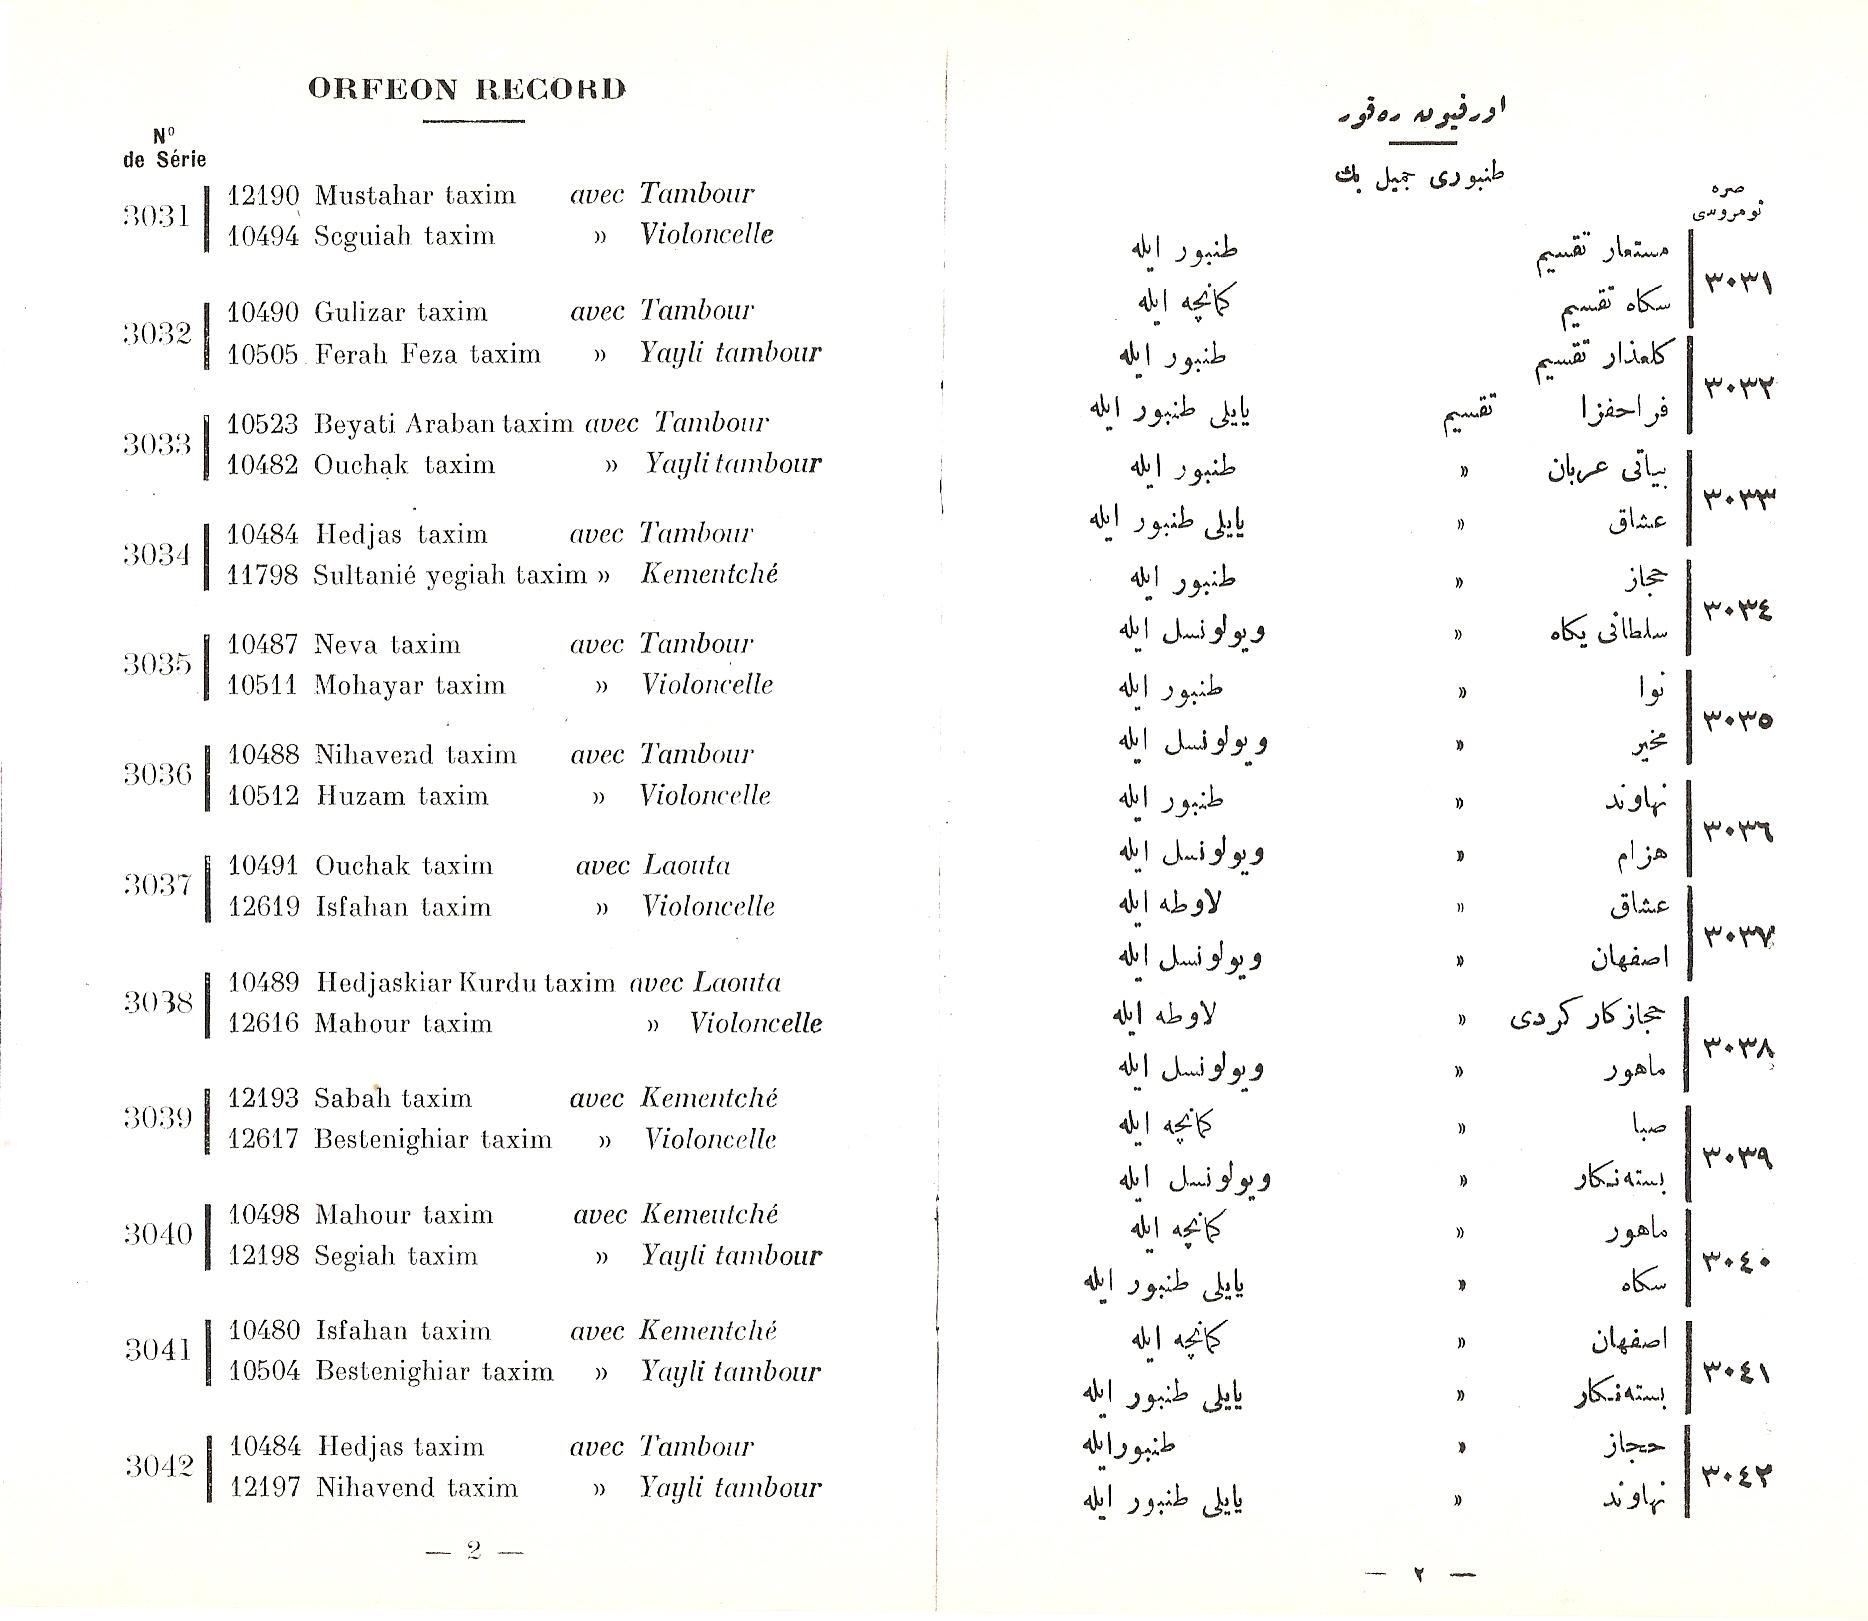 ORFEON RECORD
Nº
de Série
3031
12190 Mustahar taxim avec Tambour
10494 Seguiah taxim » Violoncelle
3032
10490 Gulizar taxim avec Tambour
10505 Ferah Feza taxim » Yayli tambour
3033
10523 Beyati Araban taxim avec Tambour
10482 Ouchak taxim » Yayli tambour
3034
10484 Hedjas taxim avec Tambour
11798 Sultanié yegiah taxim » Kementché
3035
10487 Neva taxim avec Tambour
10511 Mohayar taxim » Violoncelle
3036
10488 Nihavend taxim avec Tambour
10512 Huzam taxim » Violoncelle
3037
10491 Ouchak taxim avec Laouta
12619 Isfahan taxim » Violoncelle
3038
10489 Hedjaskiar Kurdu taxim avec Laouta
12616 Mahour taxim » Violoncelle
3039
12193 Sabah taxim avec Kementché
12617 Bestenighiar taxim » Violoncelle
3040
10498 Mahour taxim avec Kementché
12198 Segiah taxim » Yayli tambour
3041
10480 Isfahan taxim avec Kementché
10504 Bestenighiar taxim » Yayli tambour
3042
10484 Hedjas taxim avec Tambour
12197 Nihavend taxim » Yayli tambour
— 2 —
اورفيون رەقور
طنبوری جميل بك
صره
نومروسی
٣٠٣١
مستعار تقسيم طنبور ايله
سكاه تقسيم كمانچه ايله
٣٠٣٢
كلعذار تقسيم طنبور ايله
فراحفزا تقسيم يايلی طنبور ايله
٣٠٣٣
بياتی عربان » طنبور ايله
عشاق » يايلی طنبور ايله
٣٠٣٤
حجاز » طنبور ايله
سلطانی يكاه » ويولونسل ايله
٣٠٣٥
نوا » طنبور ايله
مخير » ويولونسل ايله
٣٠٣٦
نهاوند » طنبور ايله
هزام » ويولونسل ايله
٣٠٣٧
عشاق » لاوطه ايله
اصفهان » ويولونسل ايله
٣٠٣٨
حجازكار كردی » لاوطه ايله
ماهور » ويولونسل ايله
٣٠٣٩
صبا » كمانچه ايله
بسته‌نكار » ويولونسل ايله
٣٠٤٠
ماهور » كمانچه ايله
سكاه » يايلی طنبور ايله
٣٠٤١
اصفهان » كمانچه ايله
بسته‌نكار » يايلی طنبور ايله
٣٠٤٢
حجاز » طنبورايله
نهاوند » يايلی طنبور ايله
— ٢ —